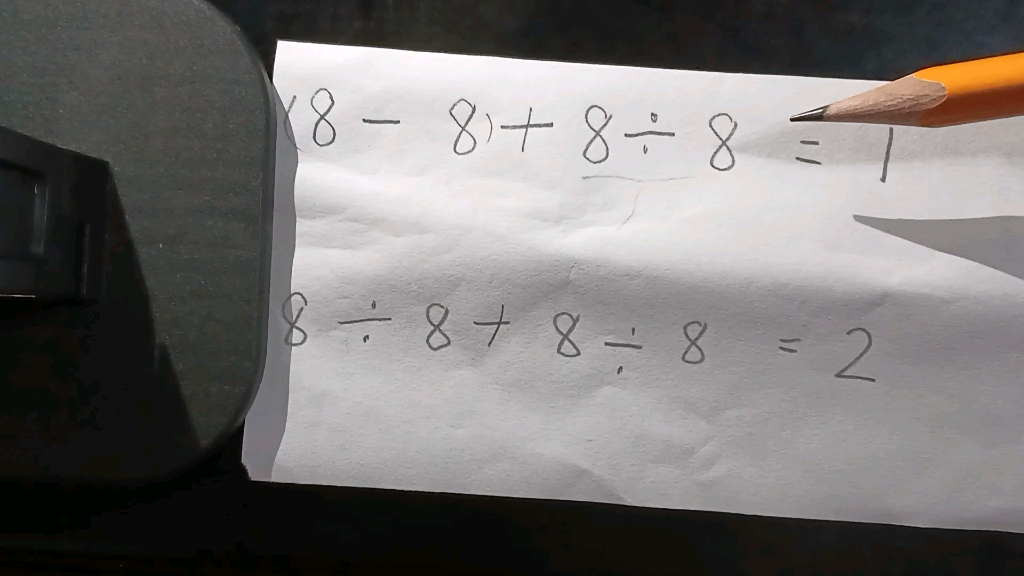 (8 - 8) + 8 ÷ 8 = 1
8 ÷ 8 + 8 ÷ 8 = 2